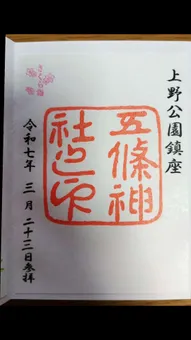 上野公園鎮座
五條神
社之印
令和七年 三月 二十三日参拝